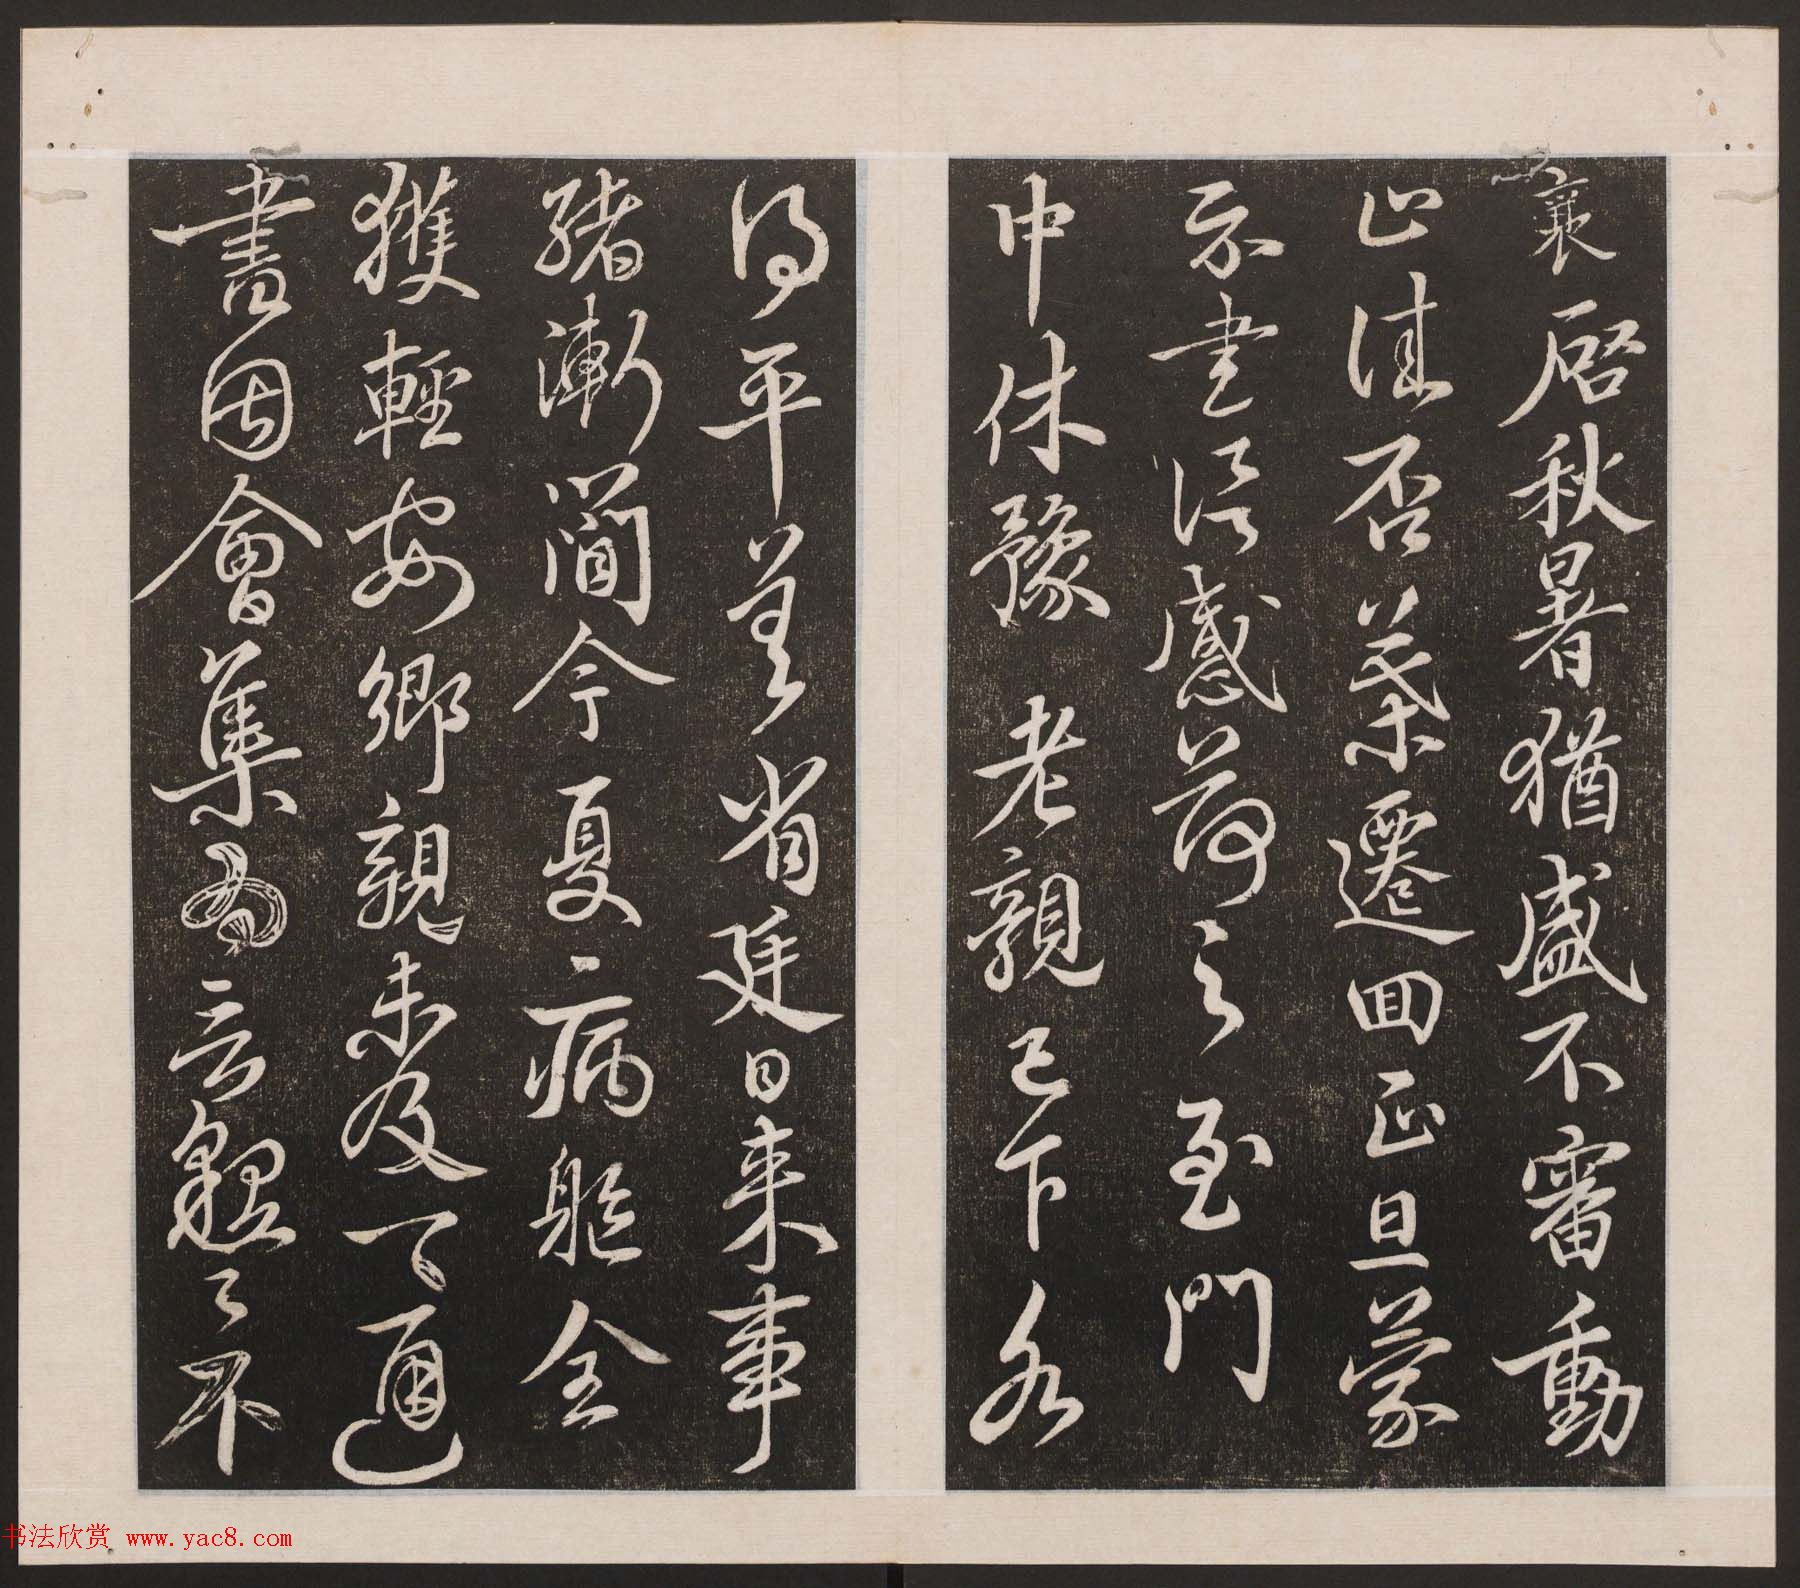 襄啓秋暑猶盛不審動
止佳否葉遷回正旦蒙
示書感荷之至門
中休豫老親已下各
得平善省廷日来事
緒漸簡今夏病軀全
獲輕安鄉親未及一一通
書因會集為言不
书法欣赏 www.yac8.com